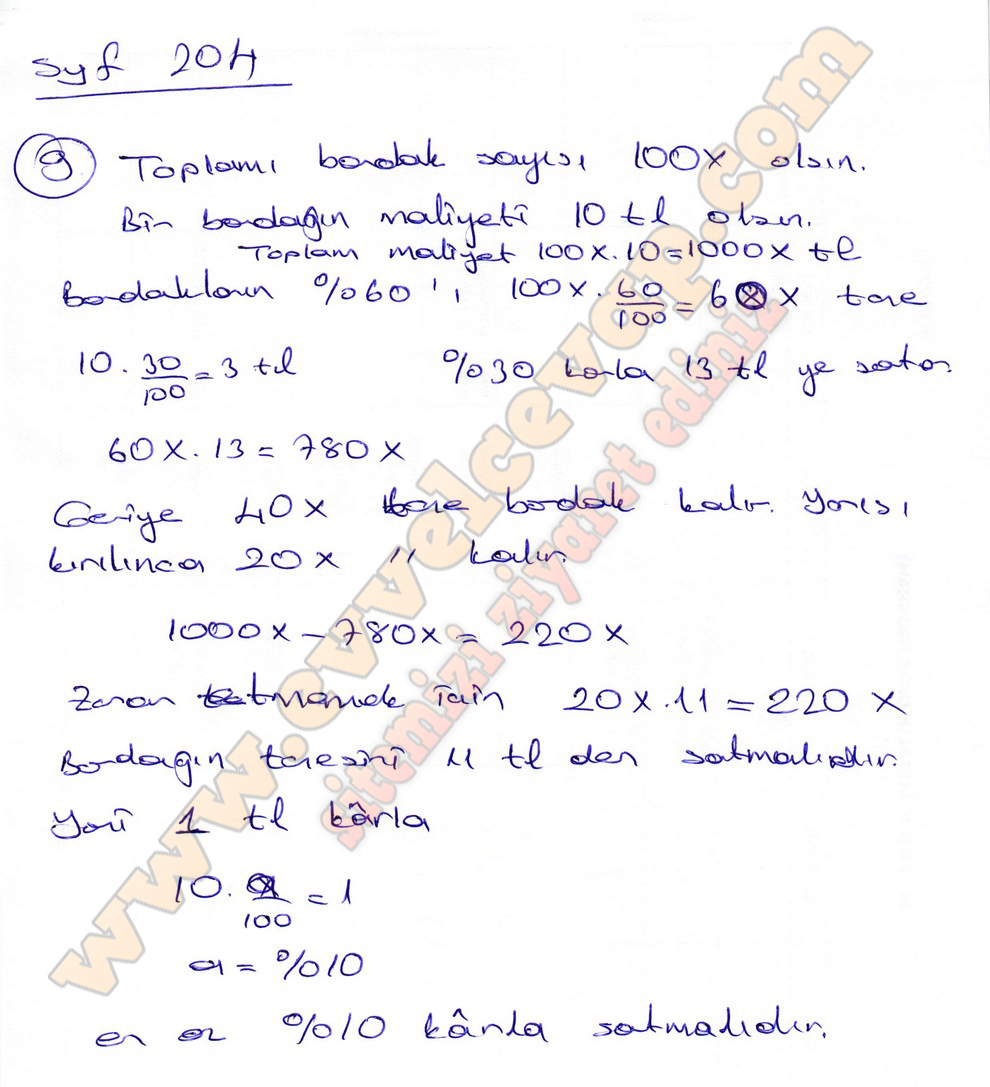 Syf 204
9 Toplamı bardak sayısı 100x olsın.
Bir bardağın maliyeti 10 tl olsın.
Toplam maliyet 100x.10=1000x tl
Bardakların %60'ı 100x.60/100=60x tane
10.30/100=3 tl %30 karla 13 tl ye satar.
60x.13=780x
Geriye 40x tane bardak kalır. Yarısı
kırılınca 20x " kalır.
1000x-780x=220x
Zarar etmemek için 20x.11=220x
Bardağın tanesini 11 tl den satmalıdır.
Yani 1 tl kârla
10.a/100=1
a=%10
en az %10 kârla satmalıdır.
www.evvelcevap.com
sitemizi ziyaret ediniz